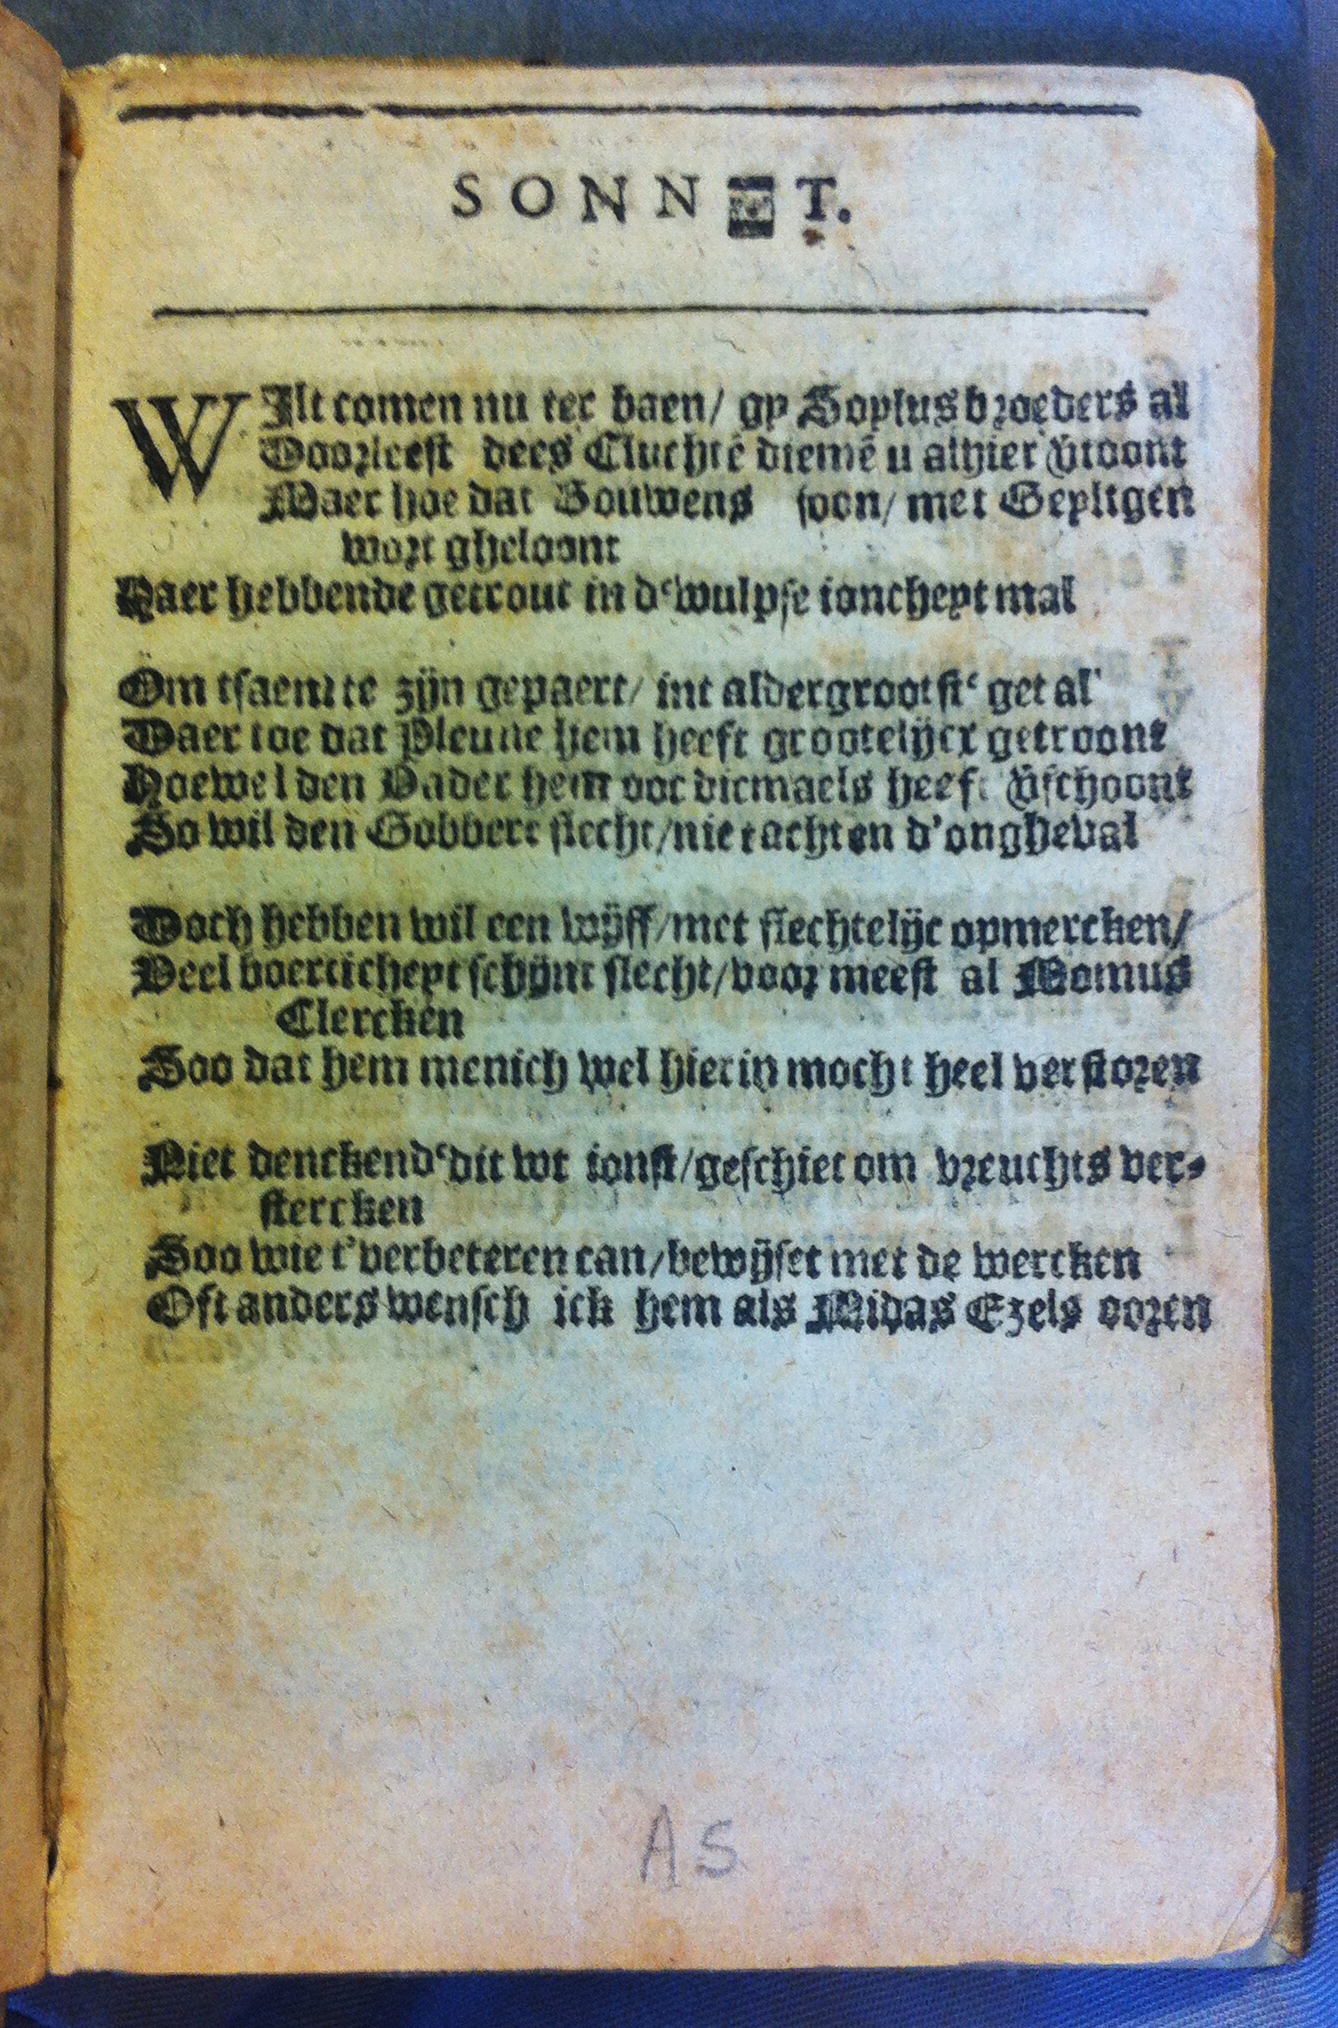 SONNET.
WIlt comen nu ter baen/ gy Soylus broeders al
Doorleest dees Cluchtē diemē u alhier v̄toont
Maer hoe dat Bouwens soon/ met Geyligen
wort gheloont
Haer hebbende getrout in d'wulpse ioncheyt mal
Om tsaemt te zijn gepaert/ int aldergrootst' getal
Daer toe dat Pleune hem heeft grootelijcx getroont
Hoewel den Vader hem ooc dicmaels heeft v̄schoont
So wil den Gobbert slecht/niet achten d'ongheval
Doch hebben wil een wijff/met slechtelijc opmercken/
Veel boerticheyt schijnt slecht/voor meest al Momus
Clercken
Soo dat hem menich wel hierin mocht heel verstoren
Niet denckend' dit wt ionst/geschiet om vreuchts ver-
stercken
Soo wie t'verbeteren can/bewijset met de wercken
Oft anders wensch ick hem als Midas Ezels ooren
A5